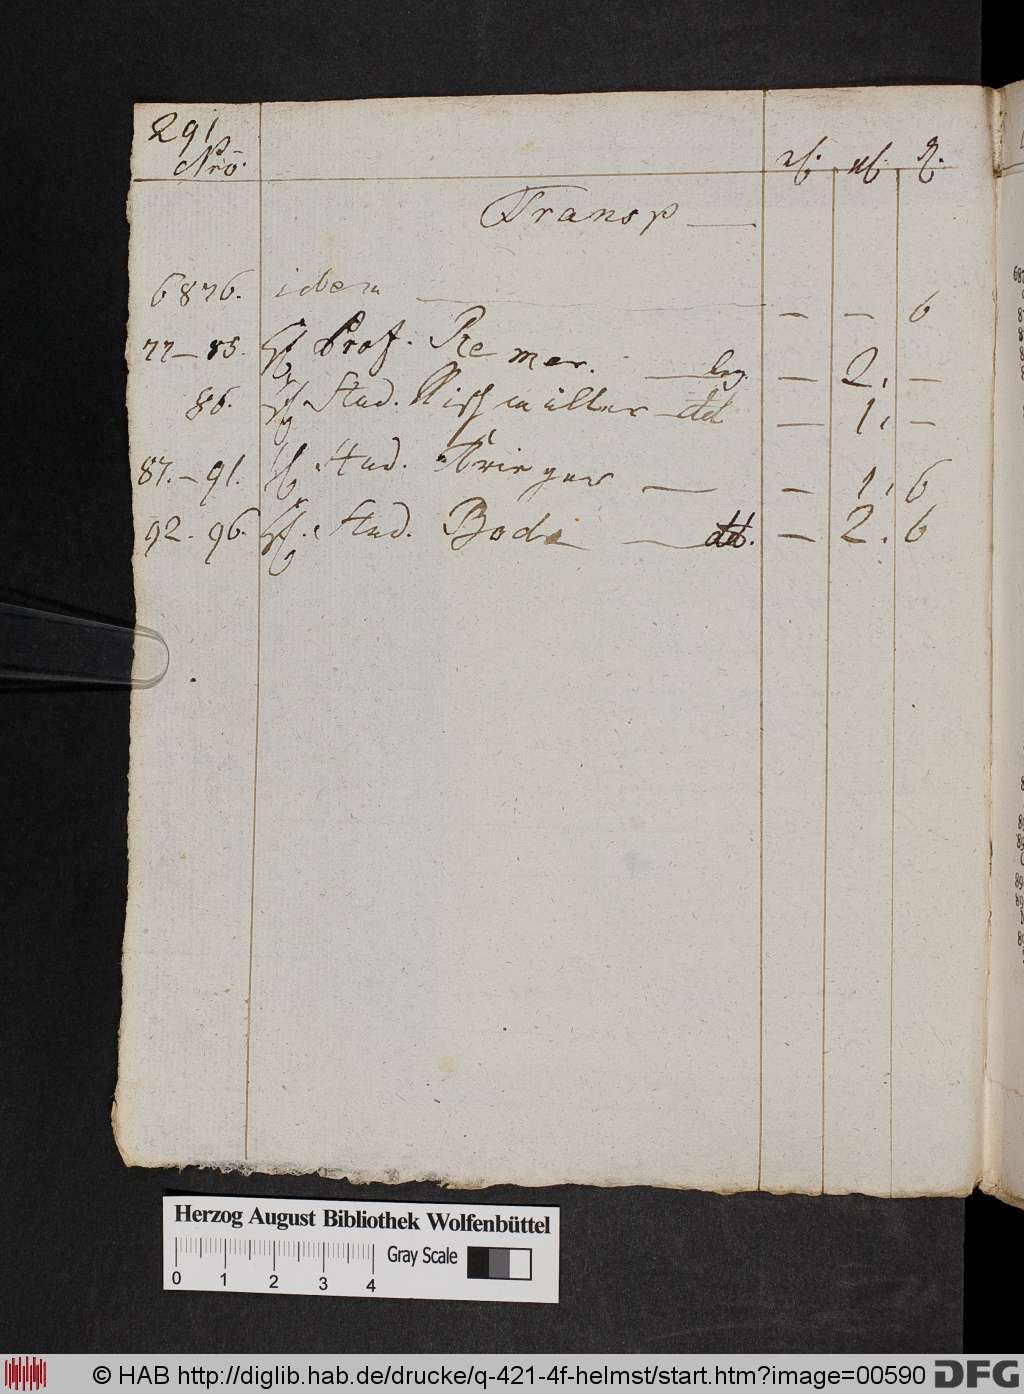 291
Nro.
Transp
6876. idem — — 6
77–85. H Prof. Remer. — 2. —
86. H Stud. dd — 1. —
87.–91. H Stud. Krieger — 1. 6
92.–96. H. Stud. Bode dd. — 2. 6
Herzog August Bibliothek Wolfenbüttel
Gray Scale
0 1 2 3 4
© HAB http://diglib.hab.de/drucke/q-421-4f-helmst/start.htm?image=00590 DFG